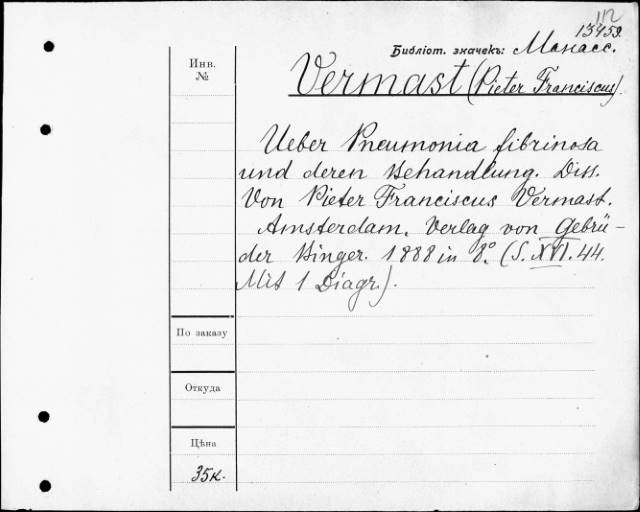 112
13459.
Библіот. значекъ: Манасс.
Инв.
№
Vermast (Pieter Franciscus).
Ueber Pneumonia fibrinosa
und deren Behandlung. Diss.
Von Pieter Franciscus Vermast.
Amsterdam. Verlag von Gebrü-
der Binger. 1888 in 8°. (S. XVI. 44.
Mit 1 Diagr.).
По заказу
Откуда
Цѣна
35к.